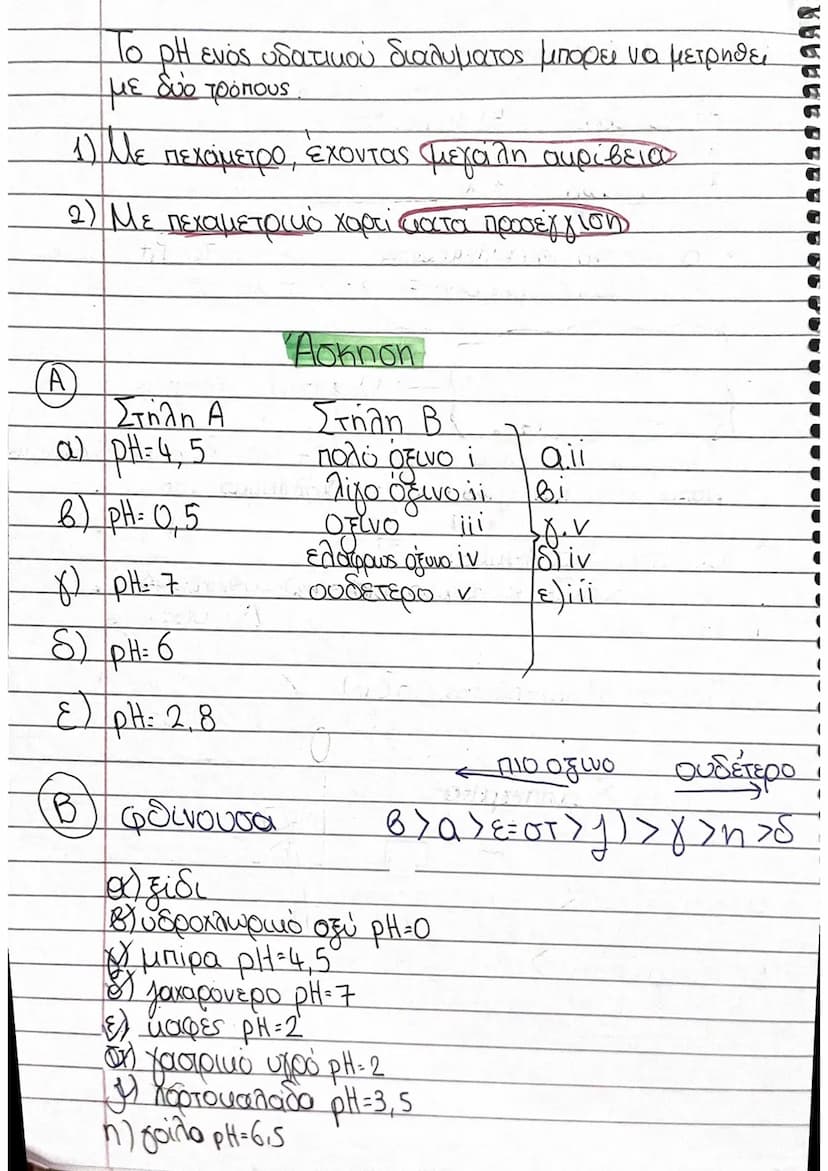 Το pH ενός υδατικού διαλύματος μπορεί να μετρηθεί
με δύο τρόπους.
1) Με πεχάμετρο, έχοντας μεγάλη ακρίβεια
2) Με πεχαμετρικό χαρτί κατά προσέγγιση
Άσκηση
Α
Στήλη Α Στήλη Β
α) pH=4,5 πολύ όξινο i α.ii
λίγο όξινο ii. β.i
β) pH= 0,5 όξινο iii γ.v
ελαφρως όξινο iv δ) iv
γ) pH= 7 ουδέτερο v ε) iii
δ) pH= 6
ε) pH= 2,8
πιο όξινο ουδέτερο
Β φθίνουσα β>α>ε=στ>ζ)>γ>η>δ
α) ξίδι
β) υδροχλωρικό οξύ pH=0
γ) μπίρα pH=4,5
δ) ζαχαρόνερο pH=7
ε) καφές pH=2
στ) γαστρικό υγρό pH=2
ζ) πορτοκαλάδα pH=3,5
η) γάλα pH=6,5